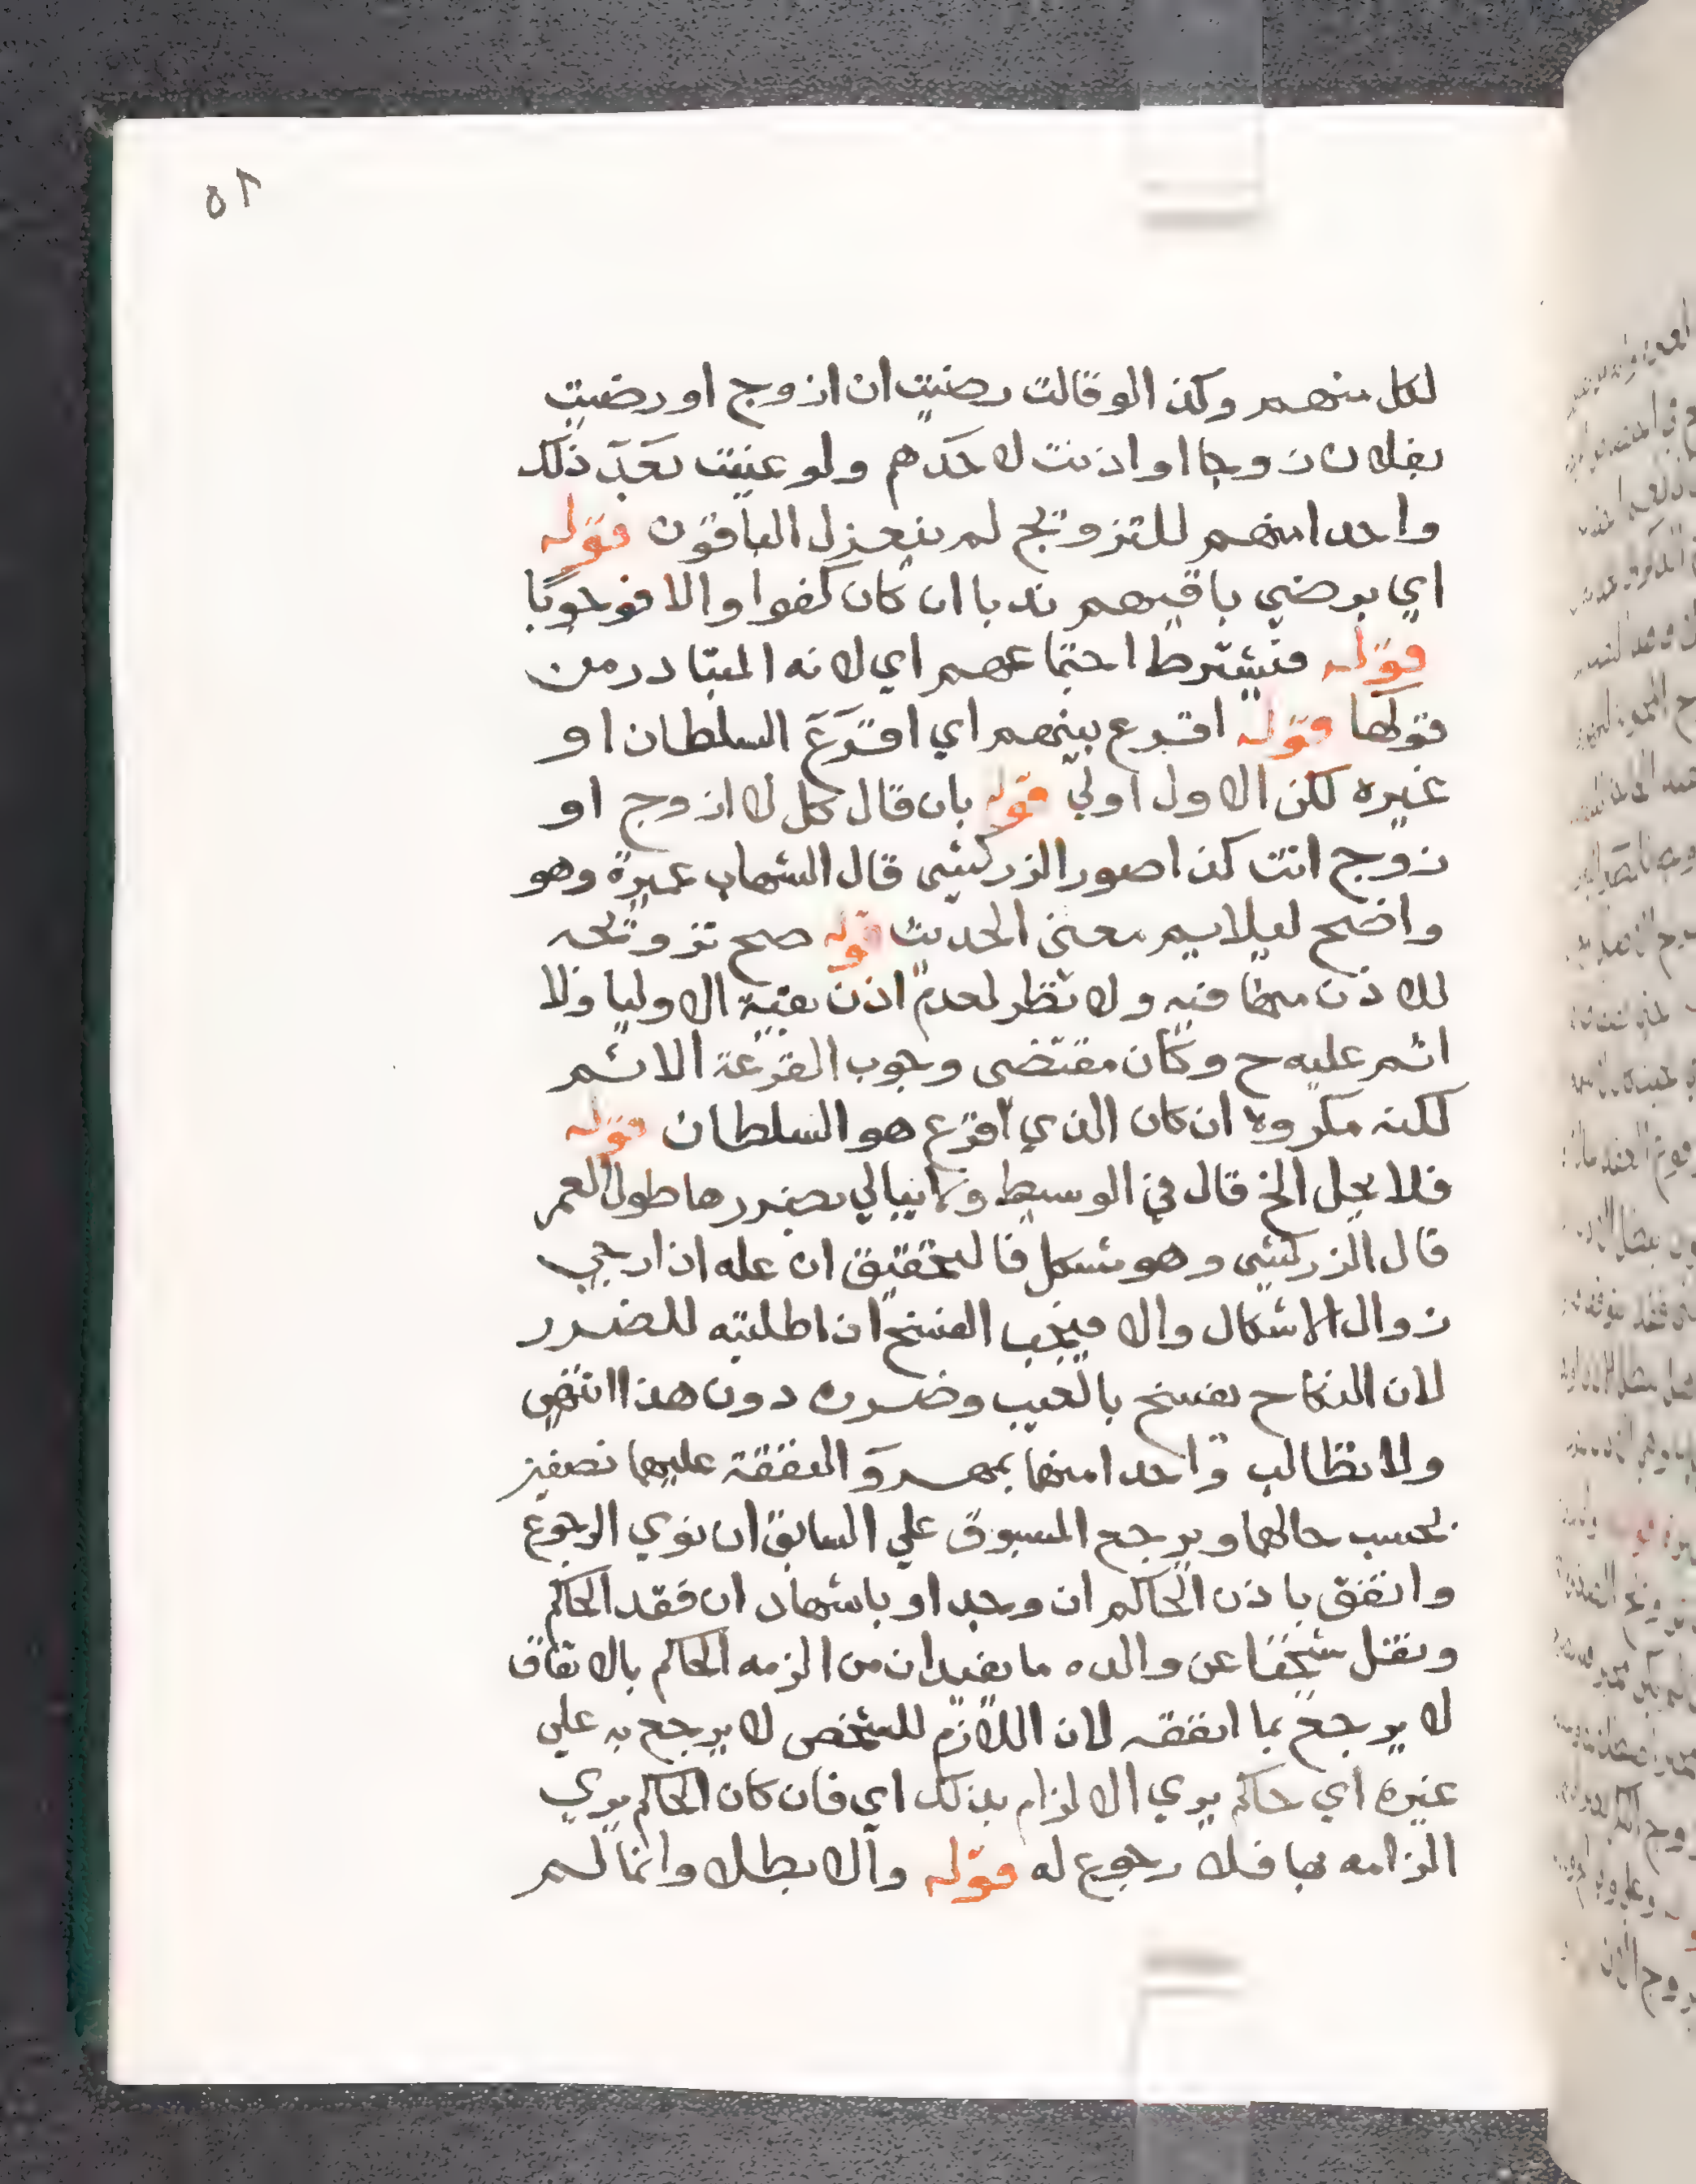 ٥٢
لكل منهم وكذا لو قالت رضيت ان ازوج او رضيت
بفلان زوجا او اذنت لاحدهم ولو عينت بعد ذلك
واحدا منهم للتزويج لم ينعزل الباقون قوله
اي برضي باقيهم ندبا ان كان كفوا والا فوجوبا
قوله فيشترط اجتماعهم اي لانه المتبادر من
قولها قوله اقرع بينهم اي اقرع السلطان او
غيره لكن الاول اولي قوله بان قال كل انا ازوج او
زوج انت كذا صور الزركشي قال الشهاب عميرة وهو
واضح ليلايم معنى الحديث قوله صح تزويجه
للاذن منها فيه ولا نظر لعدم اذن بقية الاوليا ولا
اثم عليه ح وكان مقتضى وجوب القرعة الاثم
لكنه مكروه ان كان الذي اقرع هو السلطان قوله
فلا يحل الخ قال في الوسيط ولا نبالي بضررها طول العمر
قال الزركشي وهو مشكل فالتحقيق ان عله اذا رجي
زوال الاشكال والا فيجب الفسخ اذا طلبته للضرر
لان النكاح يفسخ بالعيب وضرره دون هذا انتهي
ولا يطالب واحدا منهما بمهر والنفقة عليهما نصفين
بحسب حالهما ويرجع المسبوق علي السابق ان نوي الرجوع
وانفق باذن الحاكم ان وجد او باشهاد ان فقد الحاكم
ونقل شيخنا عن والده ما يفيد ان من الزمه الحاكم بالانفاق
لا يرجع بما انفقه لان اللازم للشخص لا يرجع به علي
غيره اي حاكم يري الالزام بذلك اي فان كان الحاكم يري
الزامه بها فلا رجوع له قوله والا بطل وانما لم